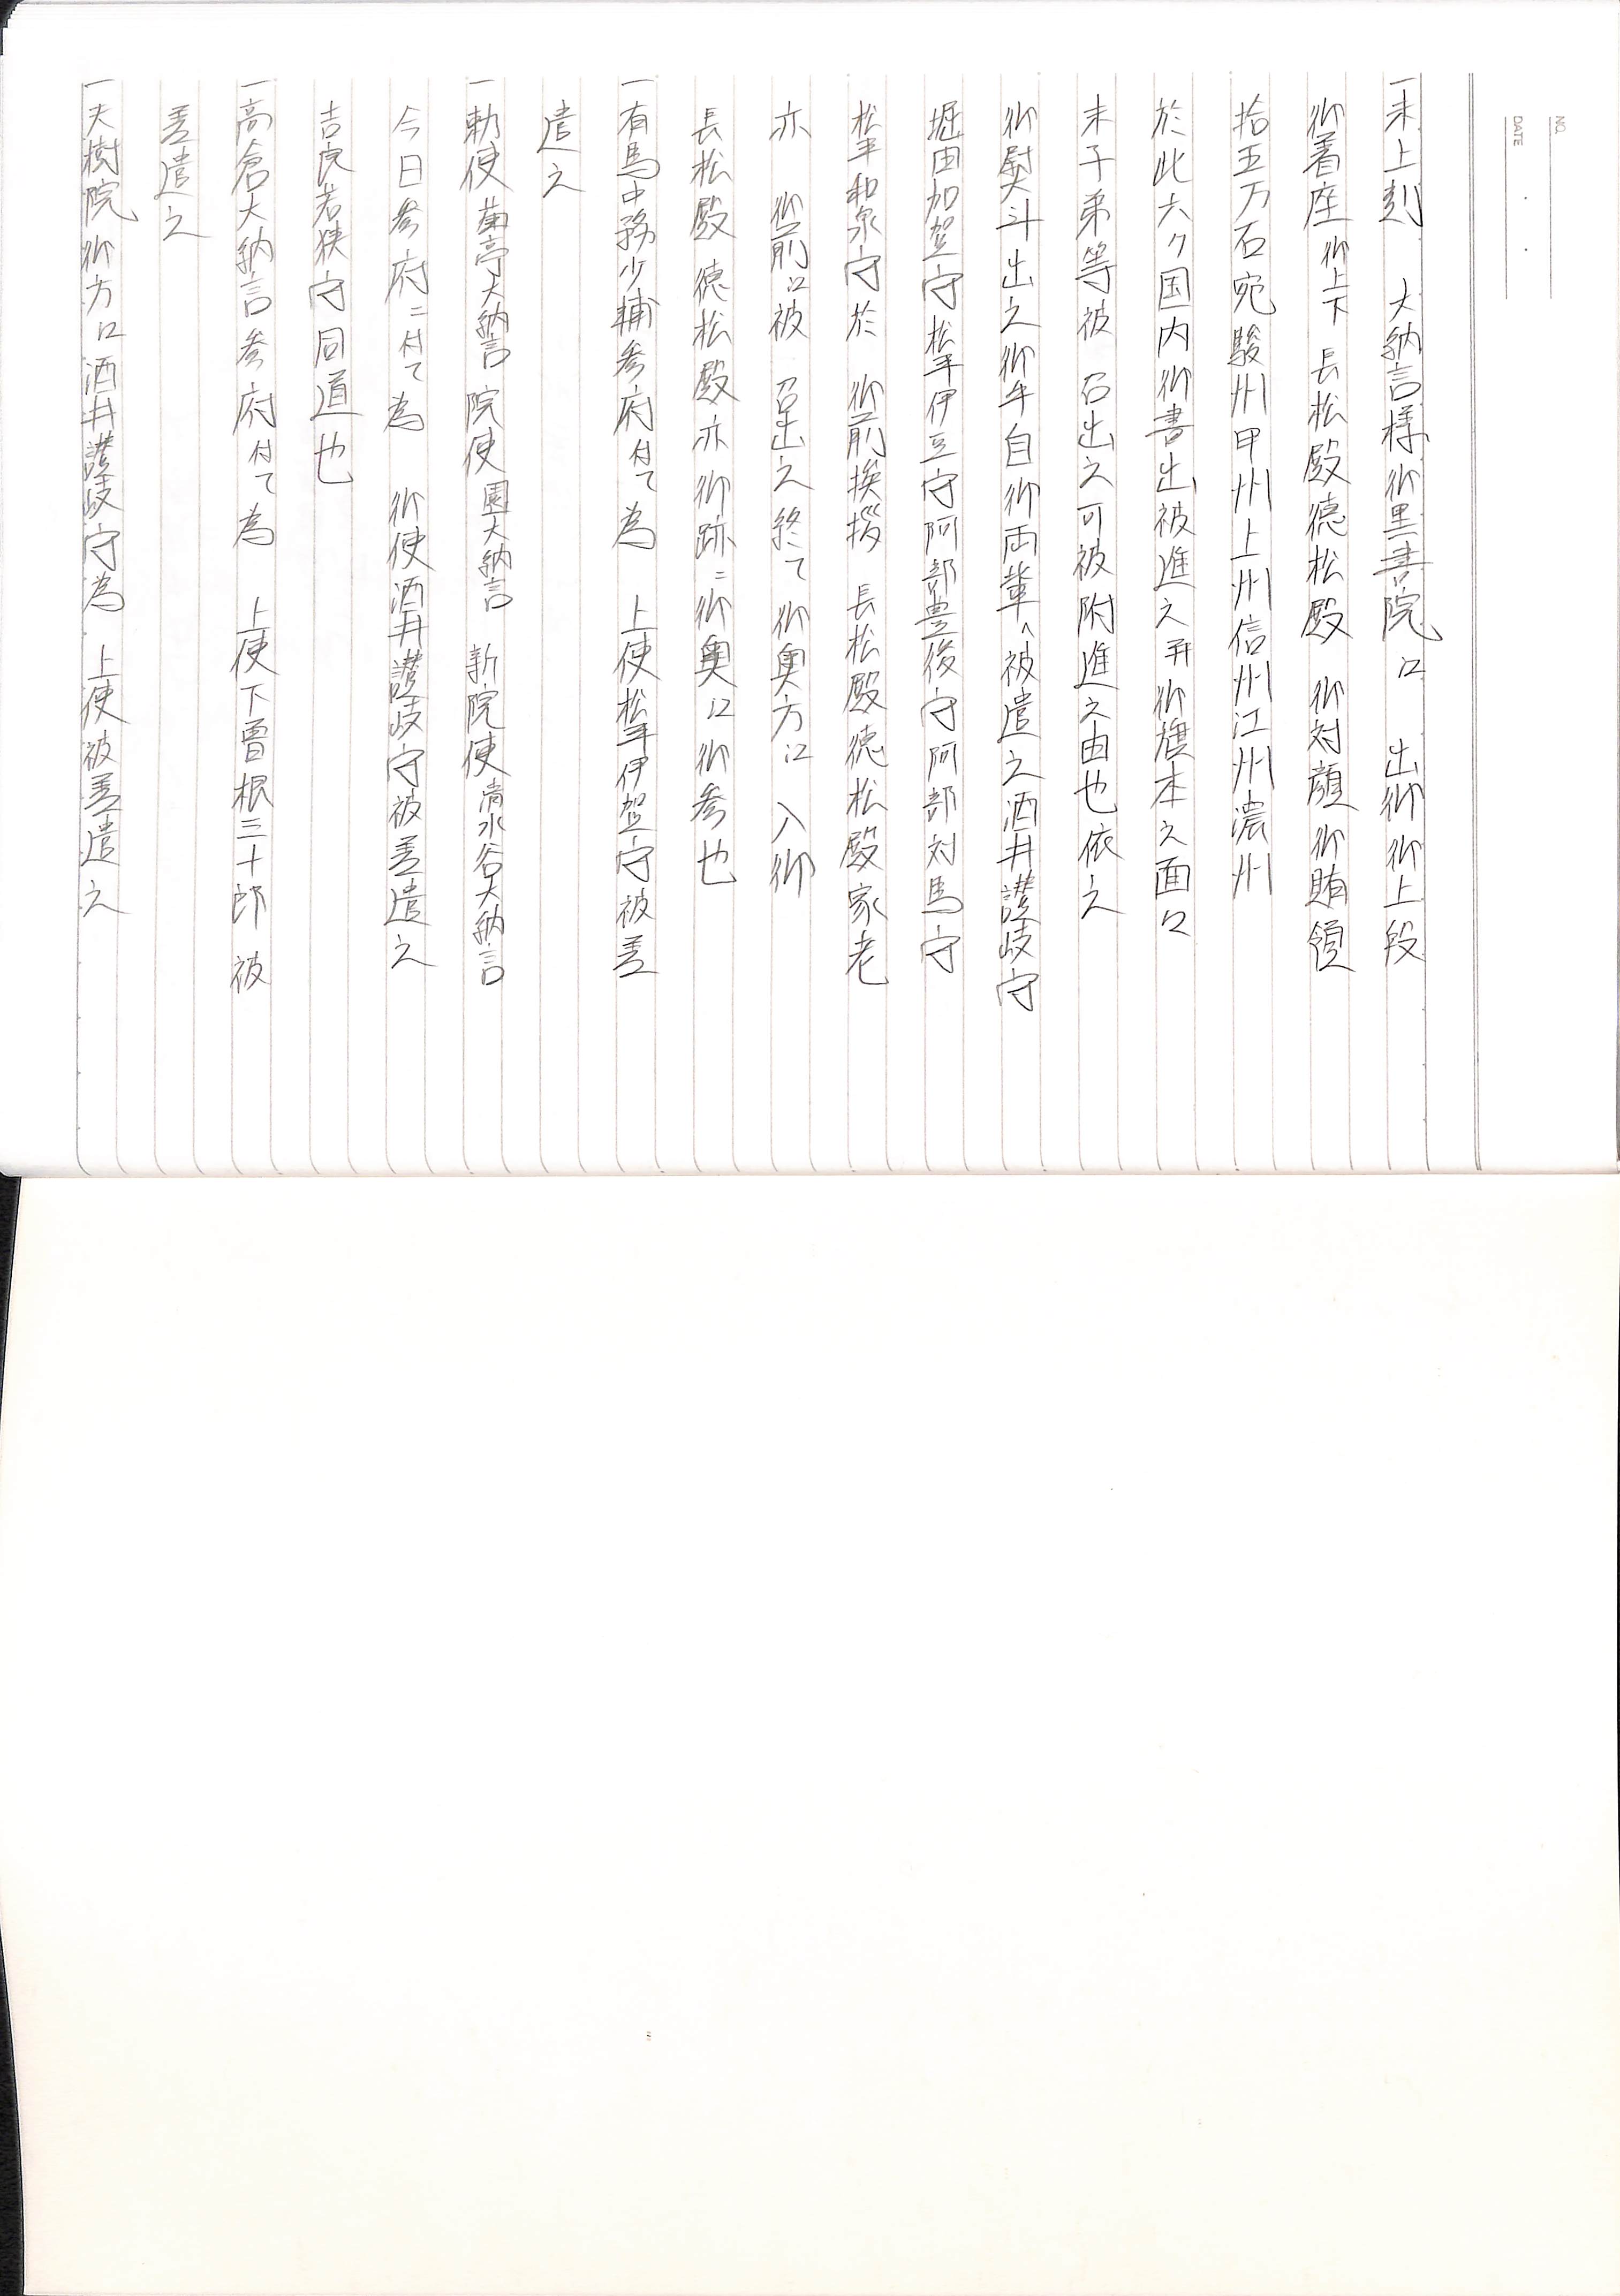 NO.
DATE
一未上刻　大納言様御黒書院江　出御御上段
御着座御上下　長松殿徳松殿　御対顔御賄領
拾五万石宛駿州甲州上州信州江州濃州
於此六ケ国内御書出被進之并御旗本之面々
末子弟等被　召出之可被附進之由也依之
御熨斗出之御手自御両輩へ被遣之酒井讃岐守
堀田加賀守松平伊豆守阿部豊後守阿部対馬守
松平和泉守於　御前挨拶　長松殿徳松殿家老
亦　御前江被　召出之終て御奥方江　入御
長松殿徳松殿亦御跡ニ御奥江御参也
一有馬中務少輔参府付て為　上使松平伊賀守被差
遣之
一勅使菊亭大納言　院使園大納言　新院使清水谷大納言
今日参府ニ付て為　御使酒井讃岐守被差遣之
吉良若狭守同道也
一高倉大納言参府付て為　上使下曽根三十郎被
差遣之
一天樹院御方江酒井讃岐守為　上使被差遣之